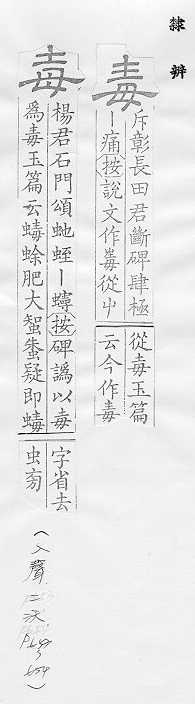 隸辨
毒
斥彰長田君斷碑肆極
丨痛按說文作毒從屮
從毒玉篇
云今作毒
毒
楊君石門頌虵蛭丨蟃按碑譌以毒
爲毒玉篇云蝳蜍肥大疑即蝳
字省去
虫旁
(入聲二沃 P.649 654)